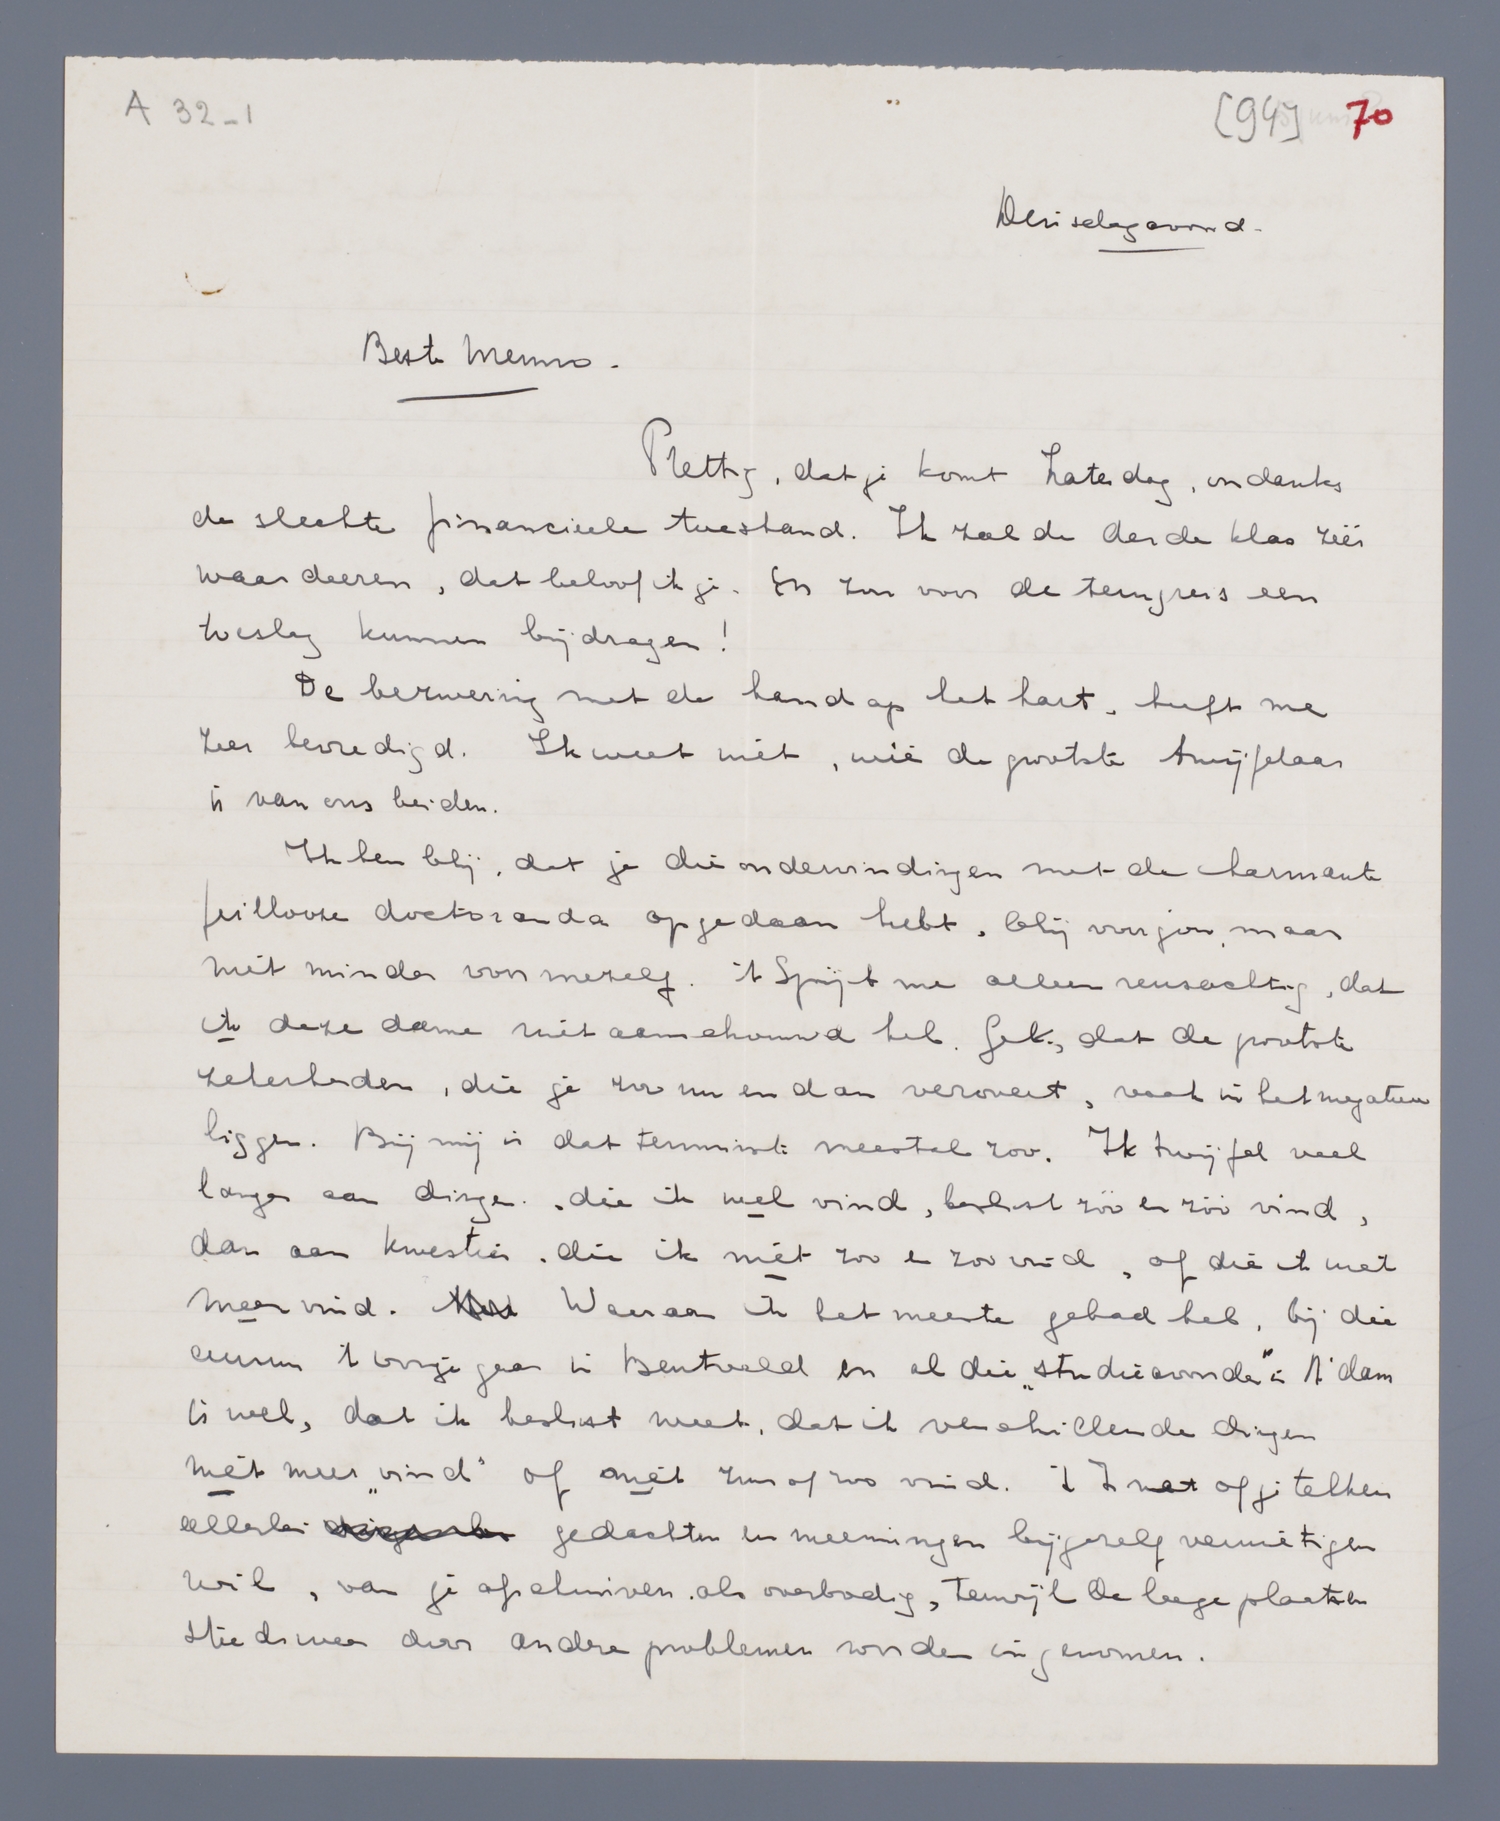 A 32-1
[94] 70
Dinsdagavond.
Beste Menno.
Prettig, dat je komt Zaterdag, ondanks
de slechte financieele toestand. Ik zal de derde klas zéér
waardeeren, dat beloof ik je. En zou voor de terugreis een
toeslag kunnen bijdragen!
De bezwering met de hand op het hart, heeft me
zeer bevredigd. Ik weet niet, wie de grootste twijfelaar
is van ons beiden.
Ik ben blij, dat je die ondervindingen met de charmante
feillooze doctoranda opgedaan hebt, blij voor jou, maar
niet minder voor mezelf. 't Spijt me alleen reusachtig, dat
ik deze dame niet aanschouwd heb. Gek, dat de grootste
zekerheden, die je zoo nu en dan verovert, vaak in het negatieve
liggen. Bij mij is dat tenminste meestal zoo. Ik twijfel veel
langer aan dingen, die ik wel vind, beslist zóó en zóó vind,
dan aan kwesties, die ik niet zoo en zoo vind, of die ik niet
meer vind. Waaraan ik het meeste gehad heb, bij die
't vorige jaar in Bentveld en al die „studieavonden" in A'dam
is wel, dat ik beslist weet, dat ik verschillende dingen
niet meer „vind" of niet zus of zoo vind. 't Is net of je telkens
allerlei gedachten en meeningen bij jezelf vernietigen
wil, van je afschuiven als overbodig, terwijl de leege plaatsen
steeds weer door andere problemen worden ingenomen.